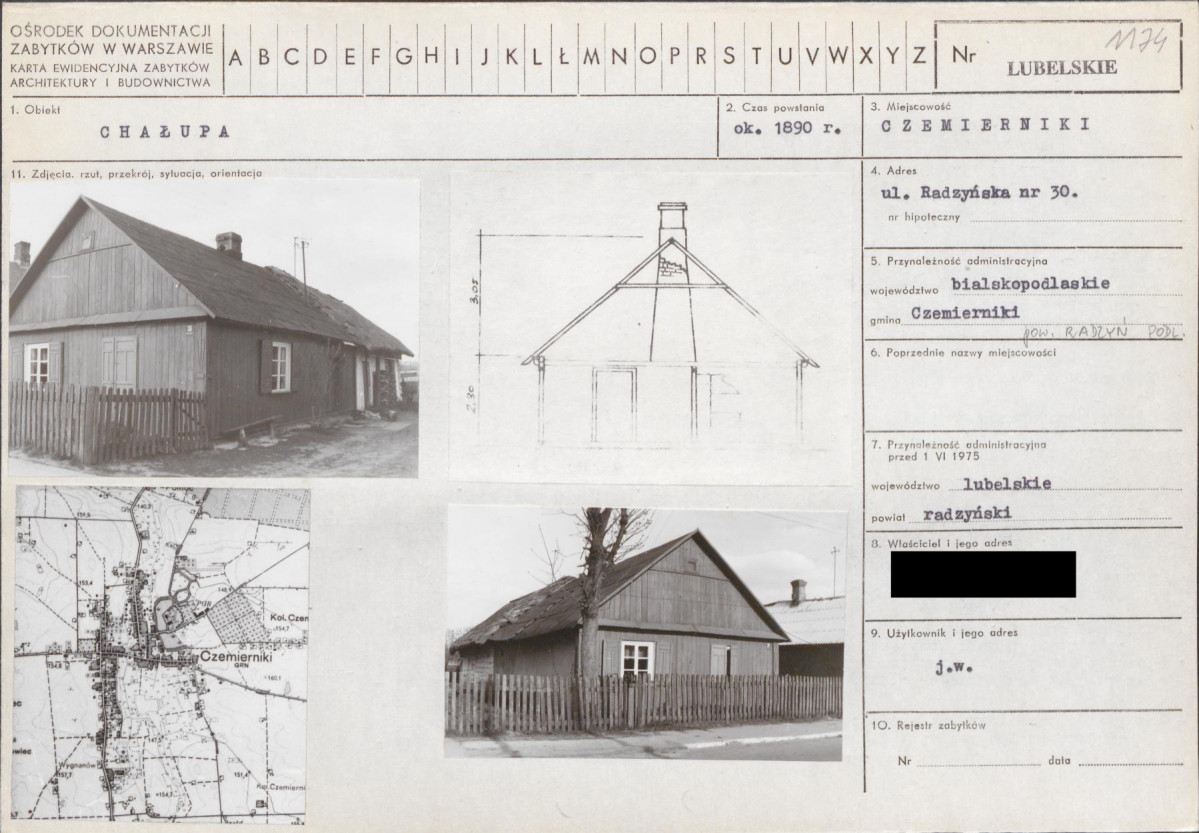 OŚRODEK DOKUMENTACJI
ZABYTKÓW W WARSZAWIE
KARTA EWIDENCYJNA ZABYTKÓW
ARCHITEKTURY I BUDOWNICTWA
A B C D E F G H I J K L Ł M N O P R S T U V W X Y Z
Nr
1174
LUBELSKIE
1. Obiekt
CHAŁUPA
2. Czas powstania
ok. 1890 r.
3. Miejscowość
CZEMIERNIKI
4. Adres
ul. Radzyńska nr 30.
nr hipoteczny
5. Przynależność administracyjna
województwo bialskopodlaskie
gmina Czemierniki
pow. RADZYŃ PODL.
6. Poprzednie nazwy miejscowości
7. Przynależność administracyjna
przed 1 VI 1975
województwo lubelskie
powiat radzyński
8. Właściciel i jego adres
9. Użytkownik i jego adres
j.w.
10. Rejestr zabytków
Nr data
11. Zdjęcia, rzut, przekrój, sytuacja, orientacja
3.05
2.30
151,5
153,4
148,1
PGR
Kol. Czem
154,7
Czemierniki
GRN
140,1
Wygnanów
157,7
154,7
151,4
Kol. Czemierni